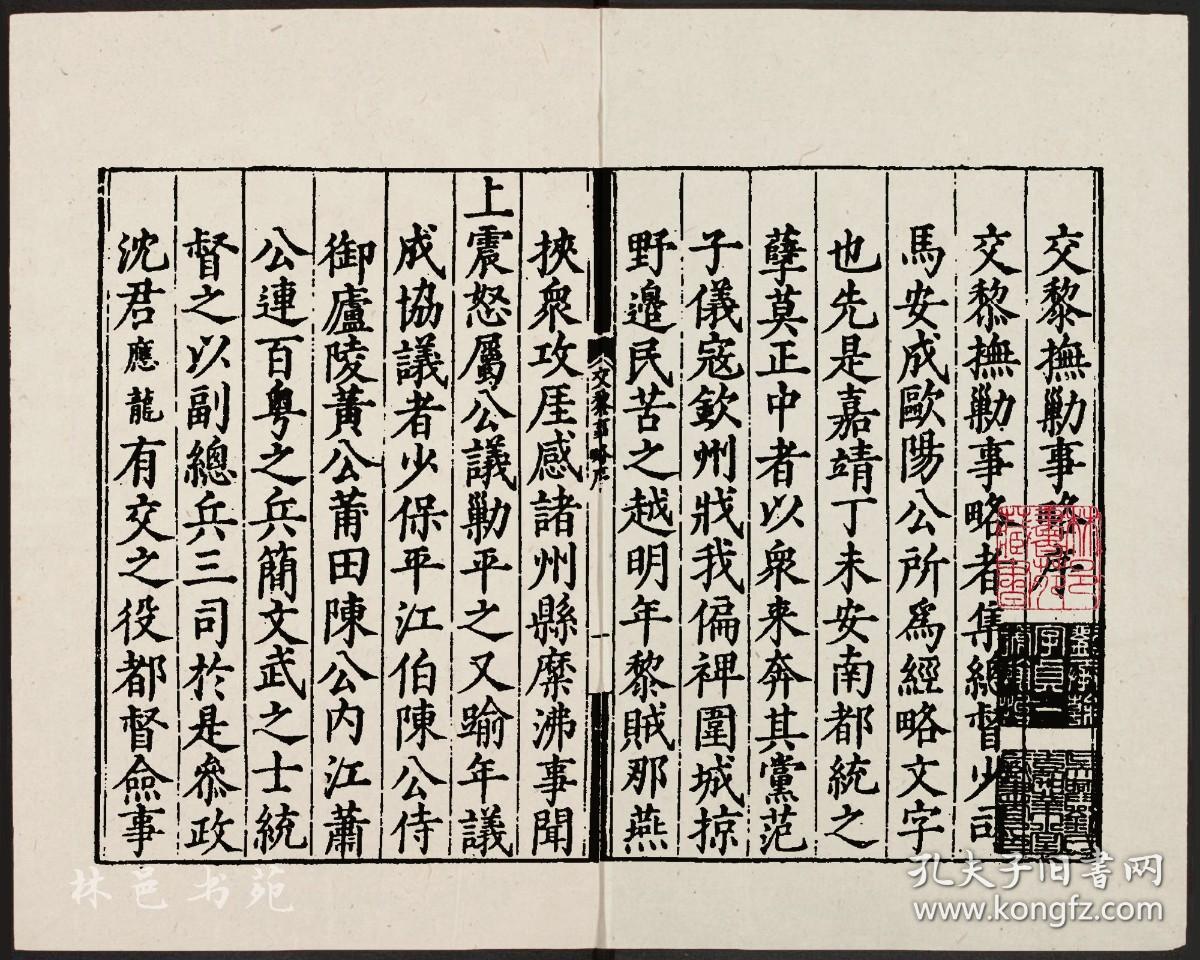 交黎撫勦事略序
交黎撫勦事略者集總督少司
馬安成歐陽公所爲經略文字
也先是嘉靖丁未安南都統之
孽莫正中者以衆来奔其黨范
子儀寇欽州戕我偏裨圍城掠
野邉民苦之越明年黎賊那燕
交黎事略序
一
挾衆攻厓感諸州縣糜沸事聞
上震怒屬公議勦平之又踰年議
成協議者少保平江伯陳公侍
御廬陵黃公莆田陳公内江蕭
公連百粤之兵簡文武之士統
督之以副總兵三司於是叅政
沈君應龍有交之役都督僉事
林邑書苑藏書
字貞一
林邑书苑
孔夫子旧书网
www.kongfz.com